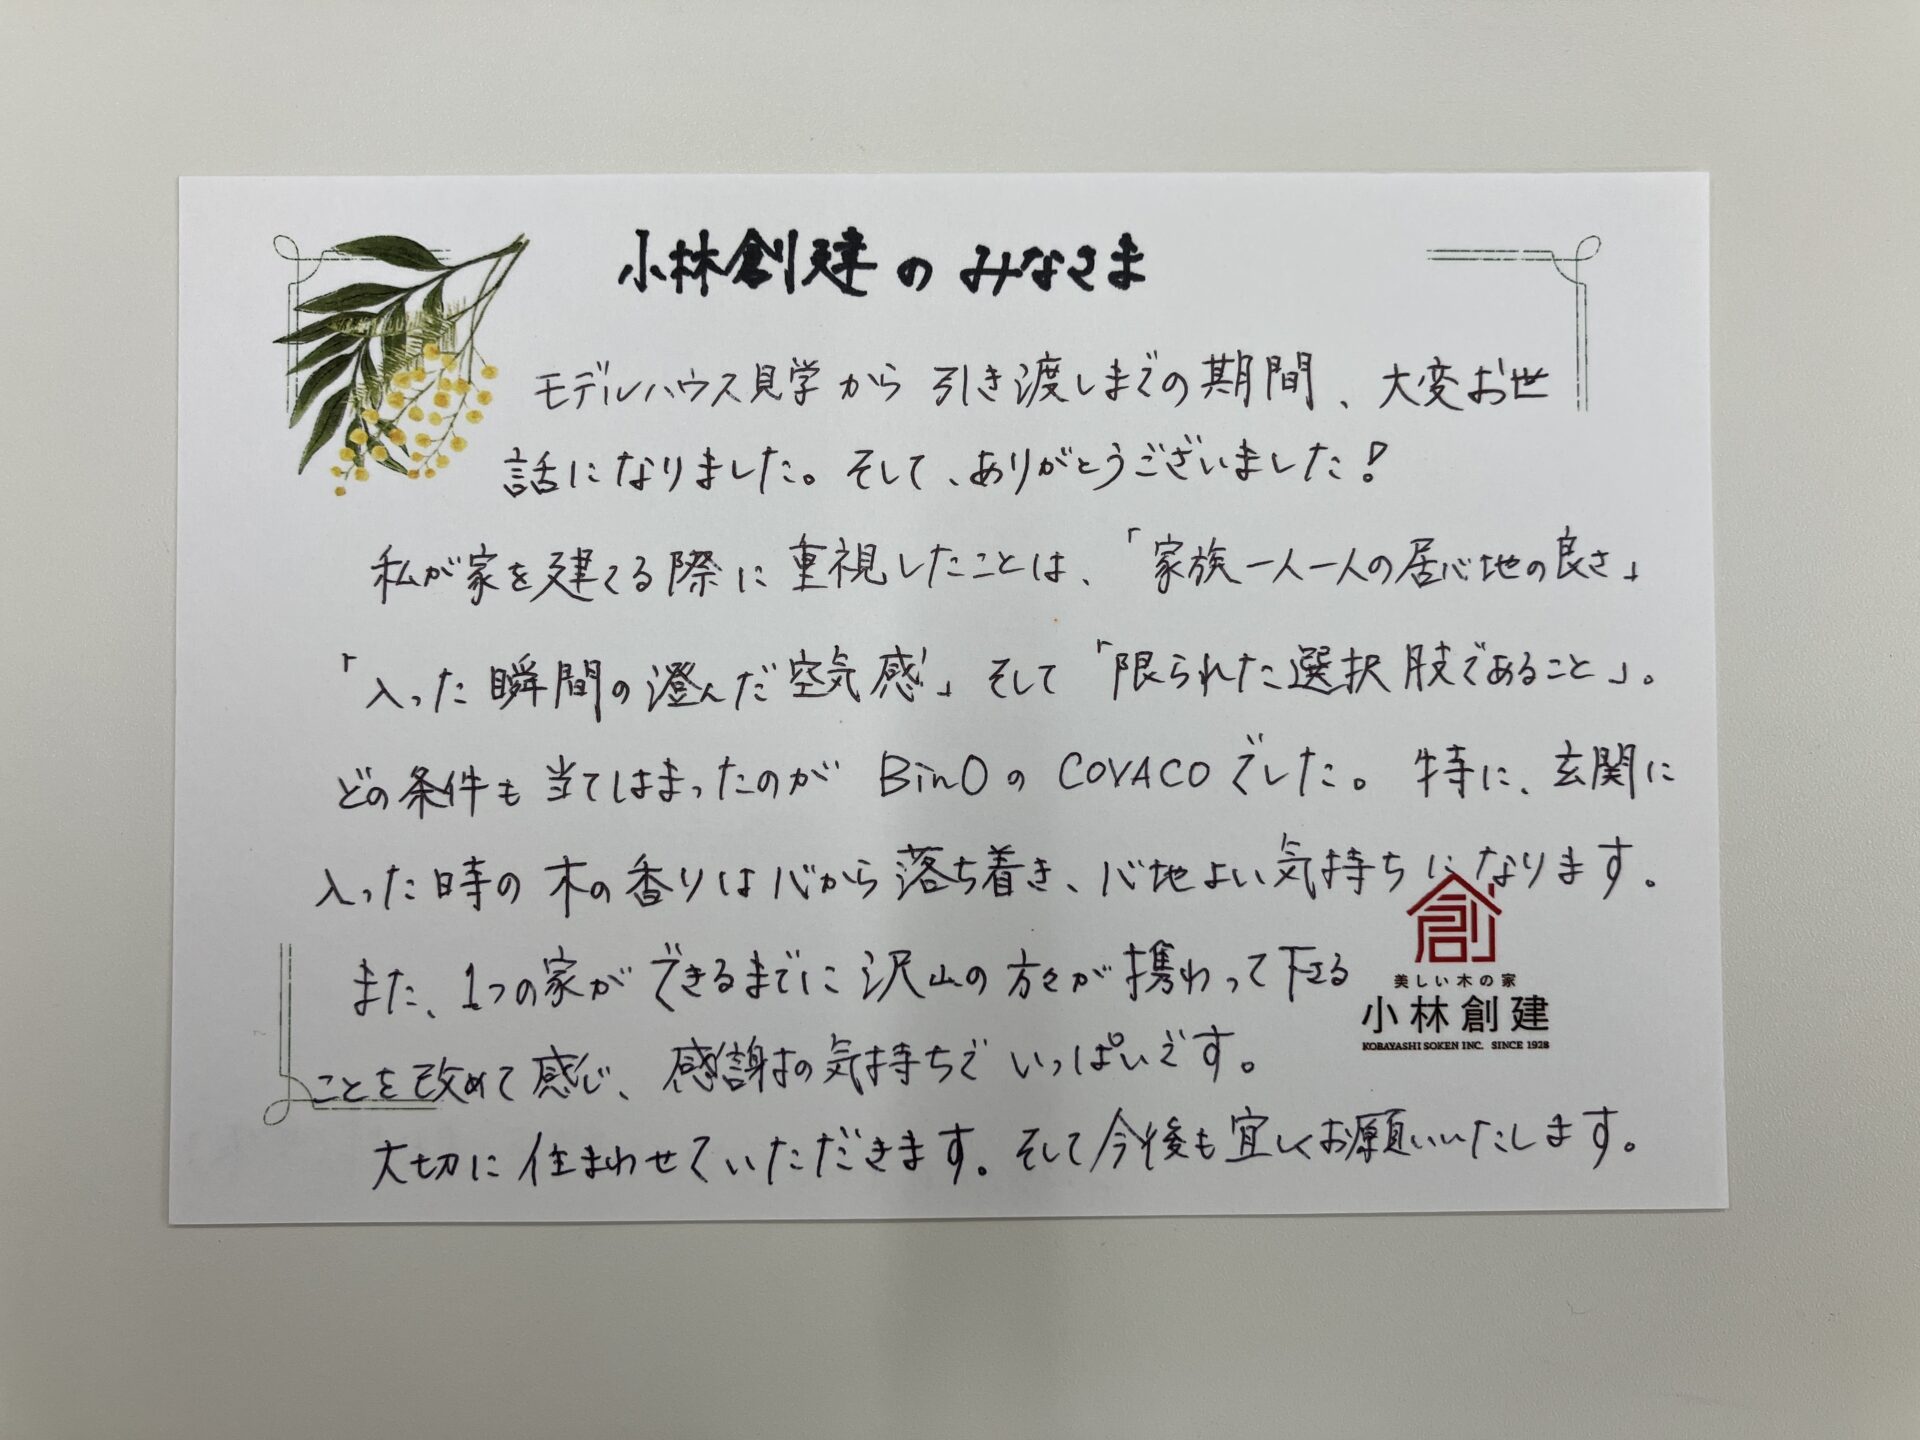 小林創建のみなさま
モデルハウス見学から引き渡しまでの期間、大変お世
話になりました。そして、ありがとうございました!
私が家を建てる際に重視したことは、「家族一人一人の居心地の良さ」
「入った瞬間の澄んだ空気感」そして「限られた選択肢であること」。
どの条件も当てはまったのがBinOのCOVACOでした。特に、玄関に
入った時の木の香りは心から落ち着き、心地よい気持ちになります。
また、1つの家ができるまでに沢山の方々が携わって下さる
ことを改めて感じ、感謝の気持ちでいっぱいです。
大切に住まわせていただきます。そして今後も宜しくお願いいたします。
創
美しい木の家
小林創建
KOBAYASHI SOKEN INC. SINCE 1928